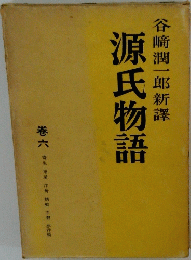 谷崎潤一郎新譯
源氏物語
卷六